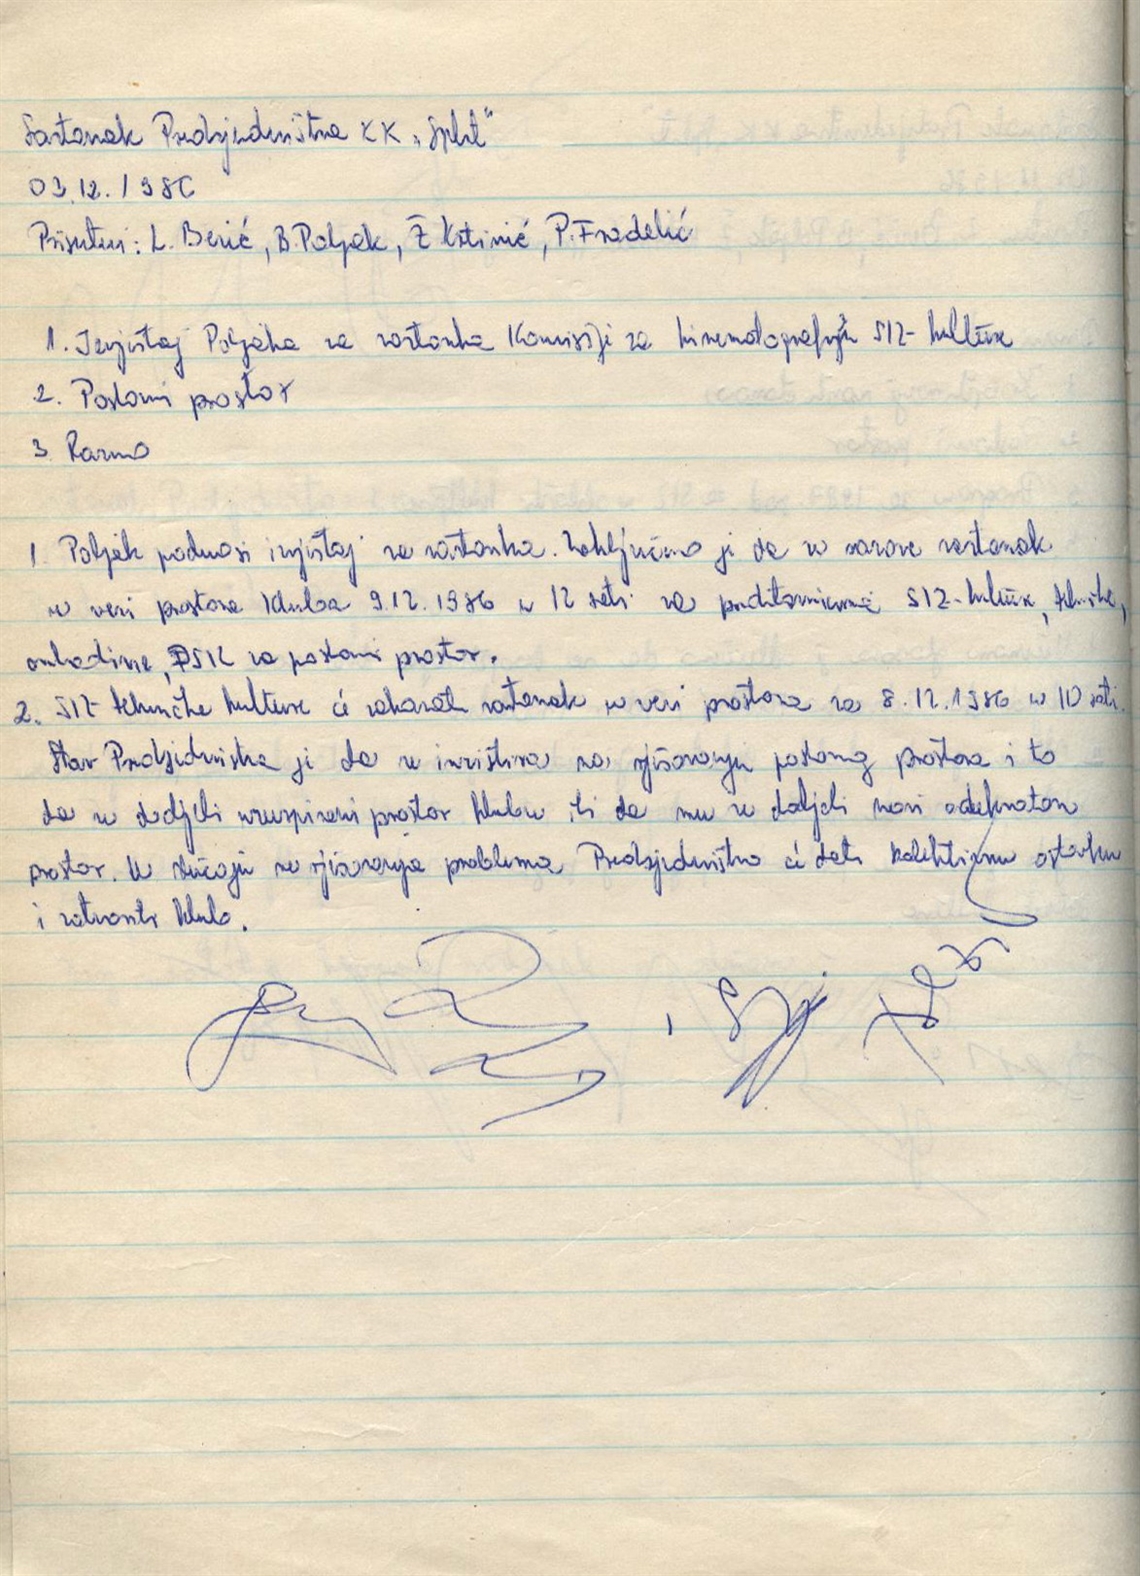 Sastanak Predsjedništva KK "Split"
03.12.1986
Prisutni: L. Berić, B. Poljak, Ž Krstinić, P. Fradelić
1. Izvještaj Poljaka sa sastanka Komisije za kinematografiju SIZ-kulture
2. Poslovni prostor
3. Razno
1. Poljak podnosi izvještaj sa sastanka. Zaključeno je da se sazove sastanak
u vezi prostora kluba 9.12.1986 u 12 sati sa predstavnicima SIZ-kulture, tehničke,
omladine, PSIZ za poslovni prostor.
2. SIZ tehničke kulture će zakazati sastanak u vezi prostora za 8.12.1986 u 10 sati.
Stav Predsjedništva je da se inzistira na rješavanju poslovnog prostora i to
da se dodjeli prostor klubu ili da mu se dodjeli novi adekvatan
prostor. U slučaju ne rješavanja problema Predsjedništvo će dati kolektivnu ostavku
i zatvoriti klub.